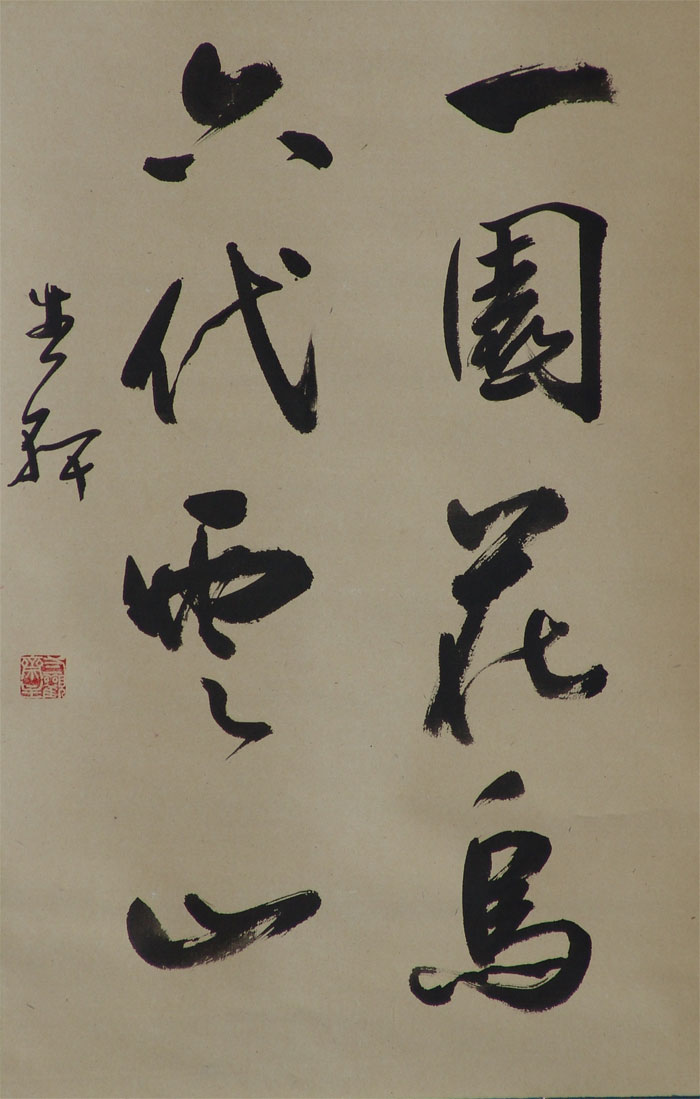 一園花鳥
六代雲山